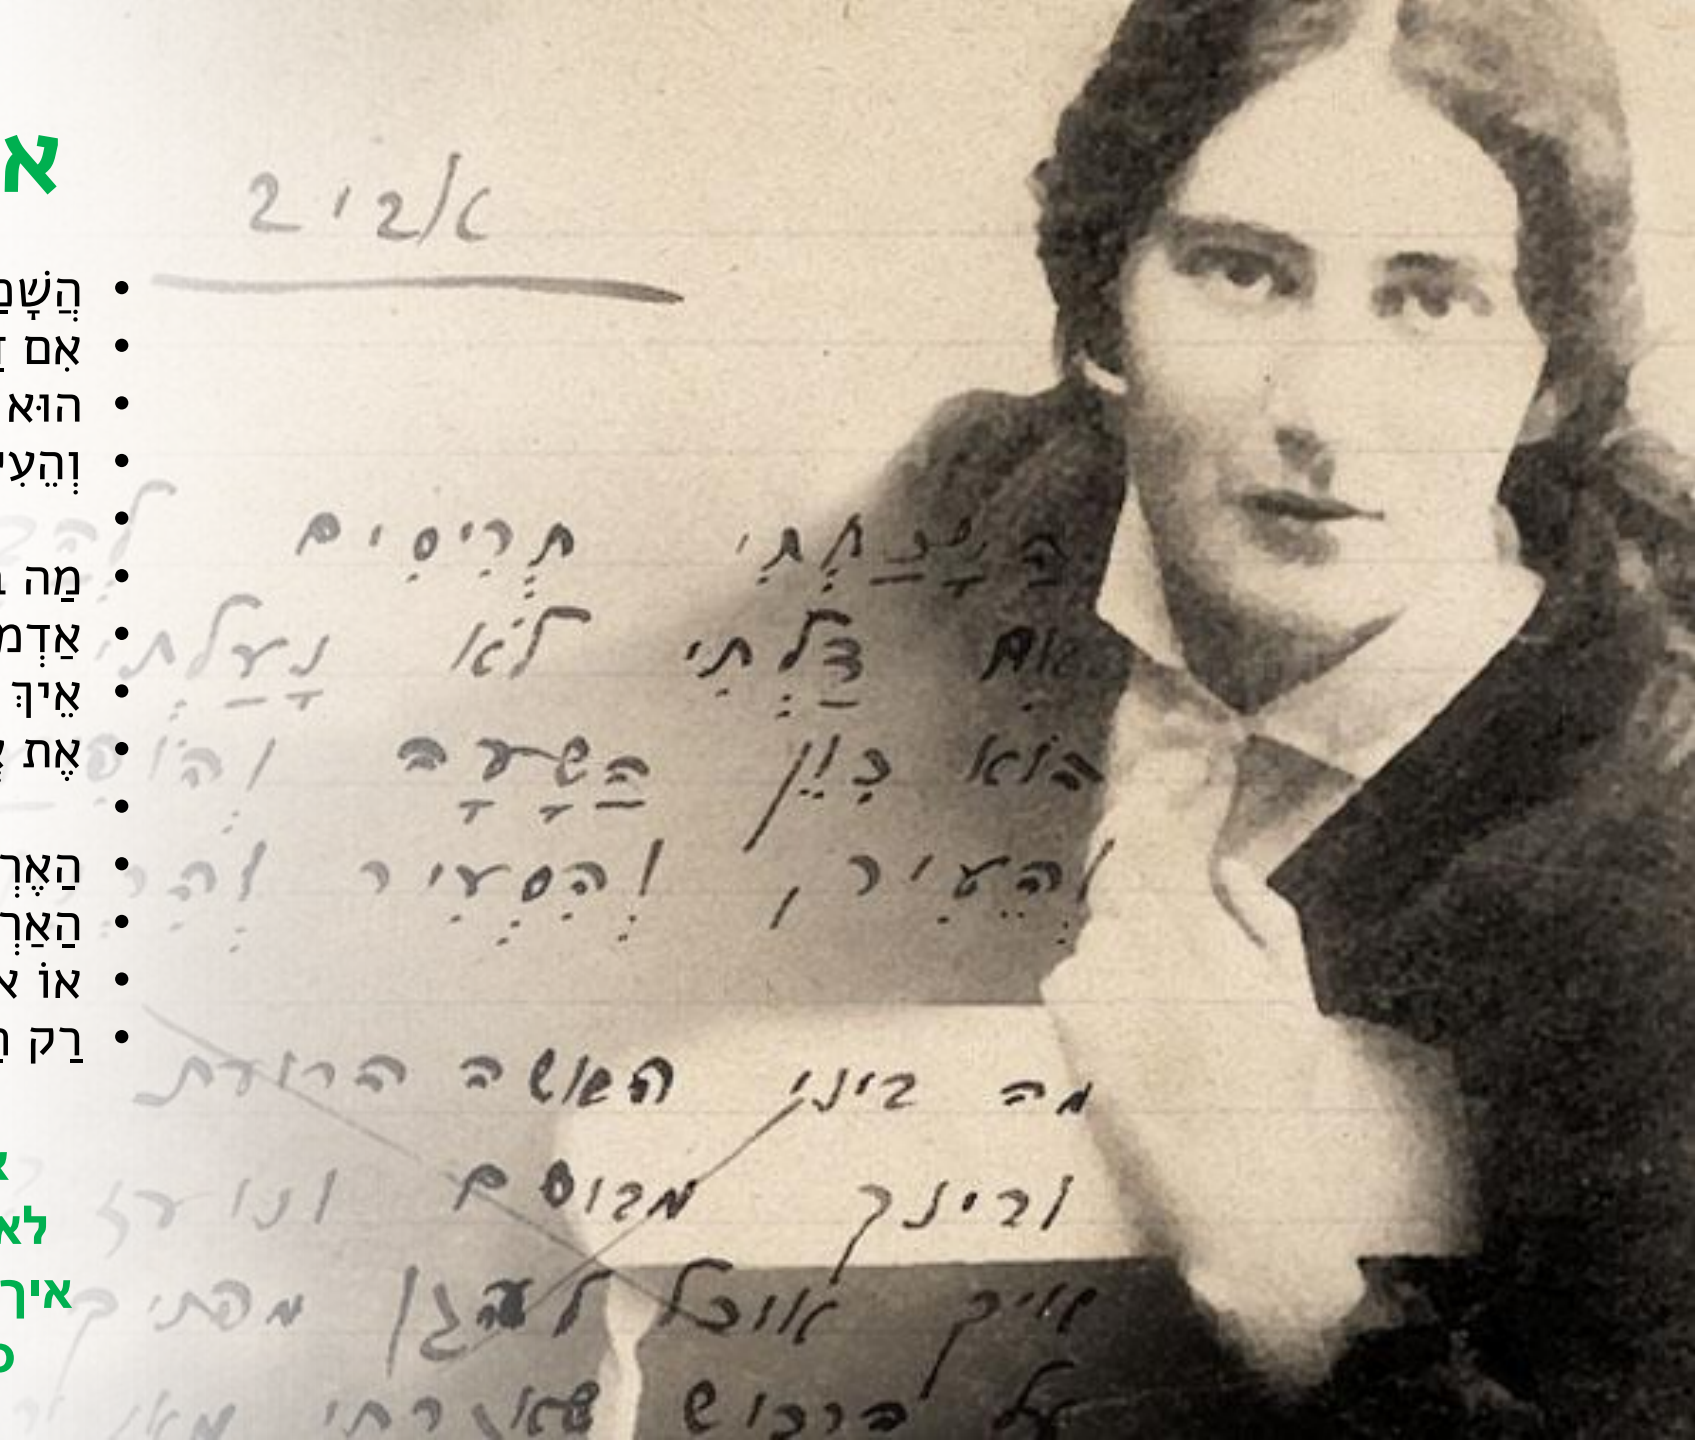 א
אביב
הֲשָׁ
אִם
הוּא
וְהֵעִי
מַה
אַדְמ
אֵיךְ
אֶת
הַאֶרְ
הַאַרְ
אוֹ א
רַק
לא
איך
הֲשָׁכַחְתִּי תְּרִיסִים
אִם דַּלְתִּי לֹא נָעַלְתִּי
הוּא כִּוֵּן הַשָּׁעָה
וְהֵעִיר, וְהִסְעִיר
מה ביני האשה
ובינך מבוסם ונועז
איך אוכל להגן מפתיך
על הרכוש שאגרתי